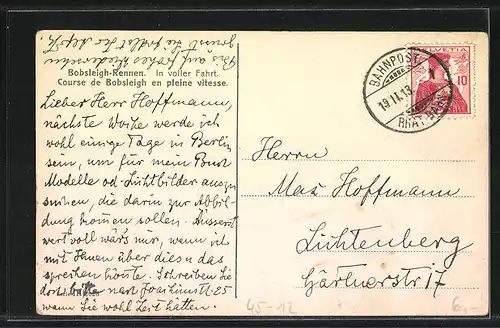 Bis auf frohes Wiedersehen
grüsst Sie herzlichst Ihr
Bobsleigh-Rennen. In voller Fahrt.
Course de Bobsleigh en pleine vitesse.
Lieber Herr Hoffmann,
nächste Woche werde ich
wohl einige Tage in Berlin
sein, um für mein Buch
Modelle od. Lichtbilder auszu-
suchen, die darin zur Abbil-
dung kommen sollen. Äusserst
wertvoll wärs mir, wenn ich
mit Ihnen über dies u. das
sprechen könnte. Schreiben Sie
dort bitte nach Joachimstl. 25
wann Sie wohl Zeit hätten.
HELVETIA
10
BAHNPOST
19.II.13
RHÄT. BAHN
Herrn
Max Hoffmann
Lichtenberg
Gärtnerstr 17
45-12
6,-